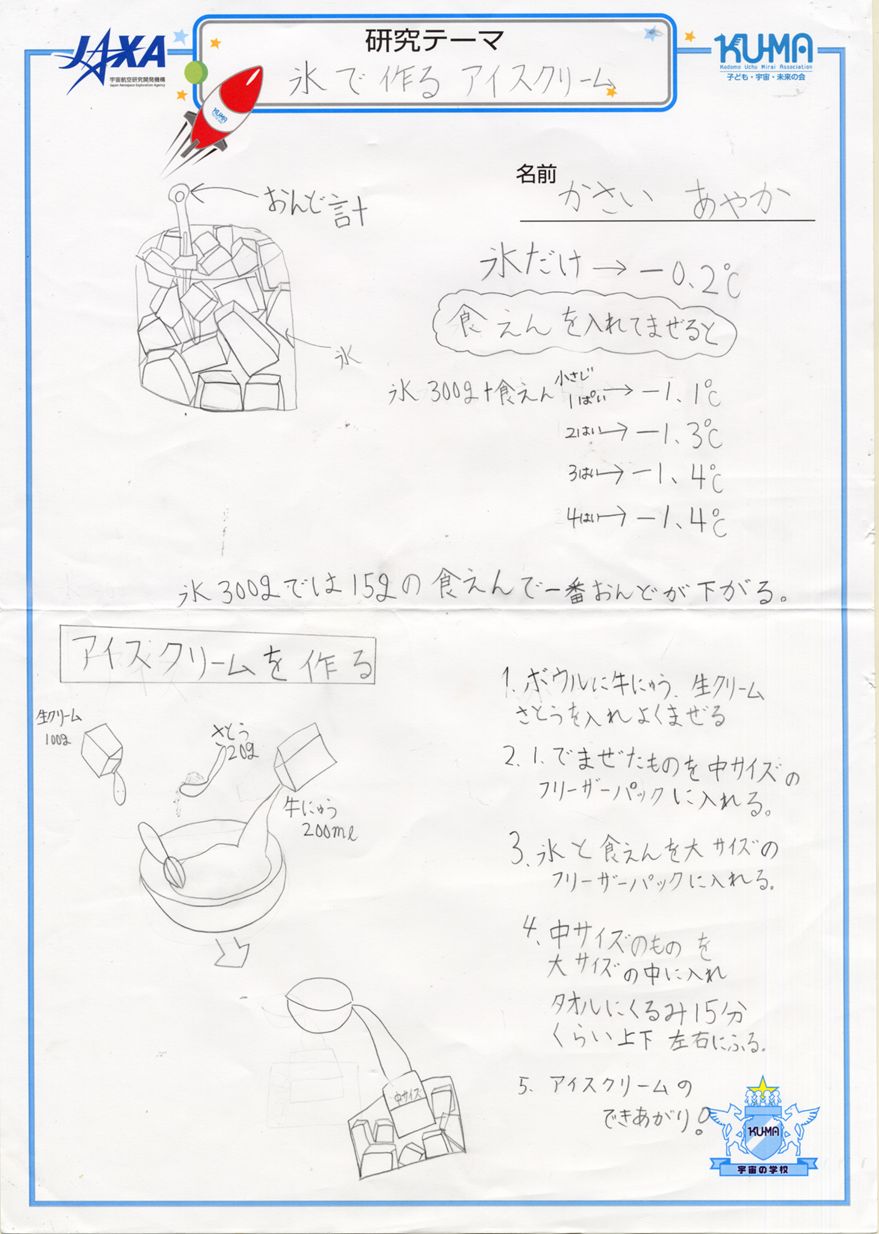 JAXA
宇宙航空研究開発機構
Japan Aerospace Exploration Agency
研究テーマ
氷で作るアイスクリーム
KU-MA
Kodomo Uchu Mirai Association
子ども・宇宙・未来の会
KU-MA
名前 かさい あやか
おんど計
氷
氷だけ→-0.2℃
食えんを入れてまぜると
氷300g+食えん小さじ1ぱい→-1.1℃
2はい→-1.3℃
3ばい→-1.4℃
4はい→-1.4℃
氷300gでは15gの食えんで一番おんどが下がる。
アイスクリームを作る
生クリーム
100g
さとう
20g
牛にゅう
200ml
中サイズ
1.ボウルに牛にゅう、生クリーム
さとうを入れよくまぜる
2.1.でまぜたものを中サイズの
フリーザーパックに入れる。
3.氷と食えんを大サイズの
フリーザーパックに入れる。
4.中サイズのものを
大サイズの中に入れ
タオルにくるみ15分
くらい上下左右にふる。
5.アイスクリームの
できあがり!
KU-MA
宇宙の学校